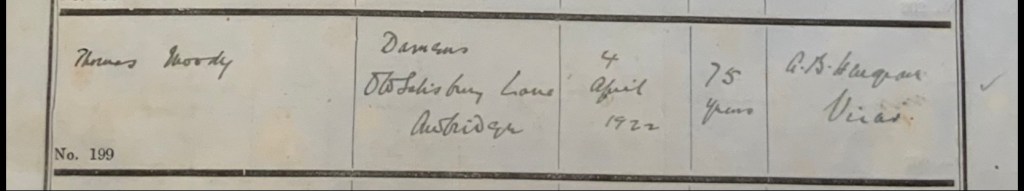 Thomas Moody
Damens
Old Salisbury Lane
Awbridge
4
April
1922
75
years
A. B.
Vicar.
No. 199